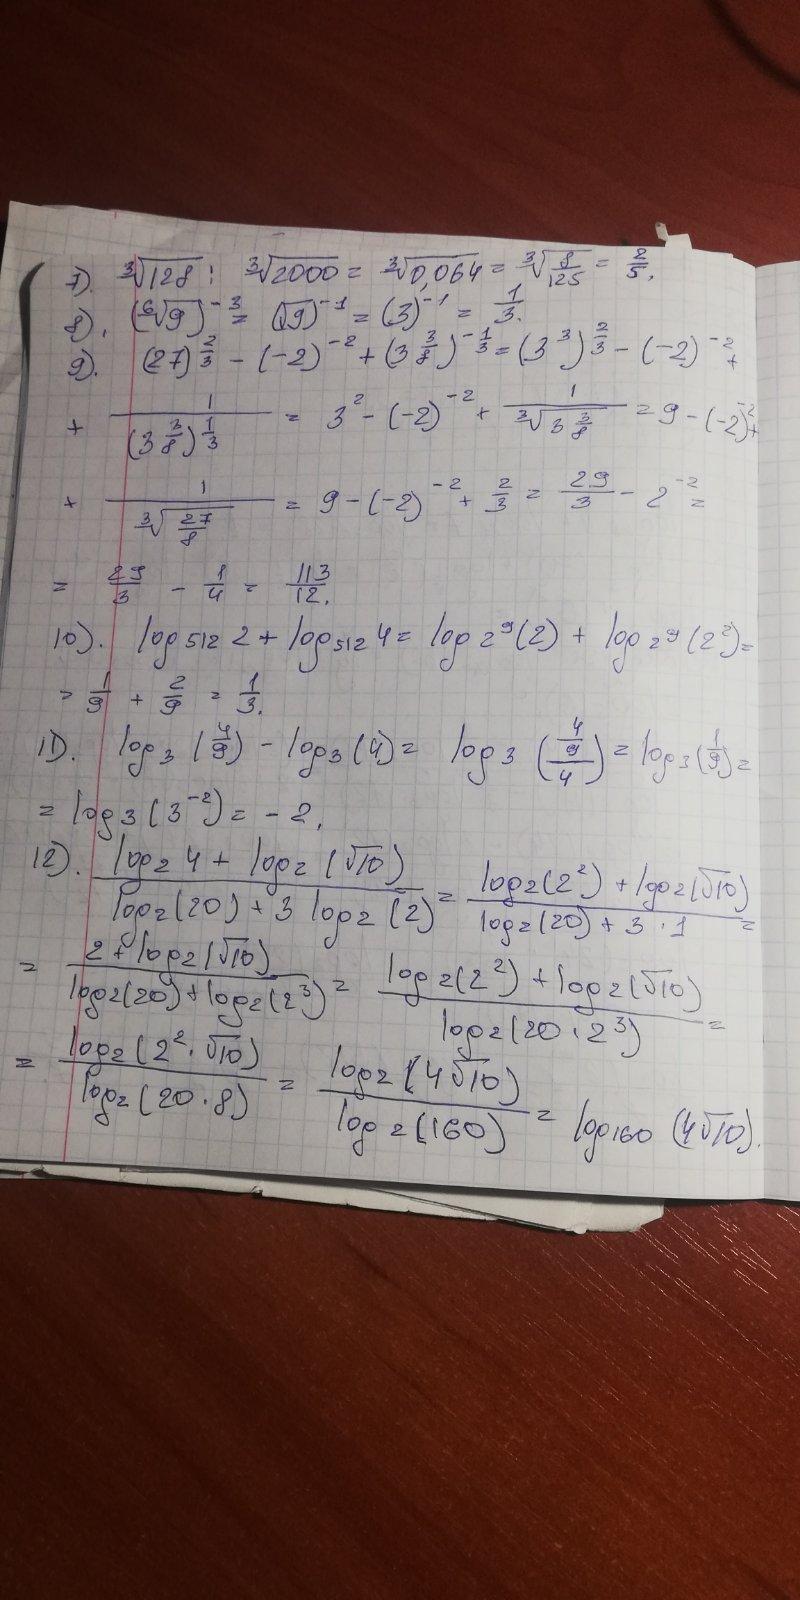 7). ∛128 : ∛2000 = ∛0,064 = ∛(8/125) = 2/5.
8). (⁶√9)^-3 = (√9)^-1 = (3)^-1 = 1/3.
9). (27)^(2/3) - (-2)^-2 + (3 3/8)^(-1/3) = (3^3)^(2/3) - (-2)^-2 +
+ 1/(3 3/8)^(1/3) = 3^2 - (-2)^-2 + 1/∛(3 3/8) = 9 - (-2)^-2 +
+ 1/∛(27/8) = 9 - (-2)^-2 + 2/3 = 29/3 - 2^-2 =
= 29/3 - 1/4 = 113/12.
10). log₅₁₂ 2 + log₅₁₂ 4 = log 2^9 (2) + log 2^9 (2^2) =
= 1/9 + 2/9 = 1/3.
11). log₃ (4/9) - log₃ (4) = log₃ ((4/9)/4) = log₃ (1/9) =
= log₃ (3^-2) = -2.
12). (log₂ 4 + log₂ (√10))/(log₂ (20) + 3 log₂ (2)) = (log₂ (2^2) + log₂ (√10))/(log₂ (20) + 3 · 1) =
= (2 + log₂ (√10))/(log₂ (20) + log₂ (2^3)) = (log₂ (2^2) + log₂ (√10))/(log₂ (20 · 2^3)) =
= (log₂ (2^2 · √10))/(log₂ (20 · 8)) = (log₂ (4√10))/(log₂ (160)) = log₁₆₀ (4√10).